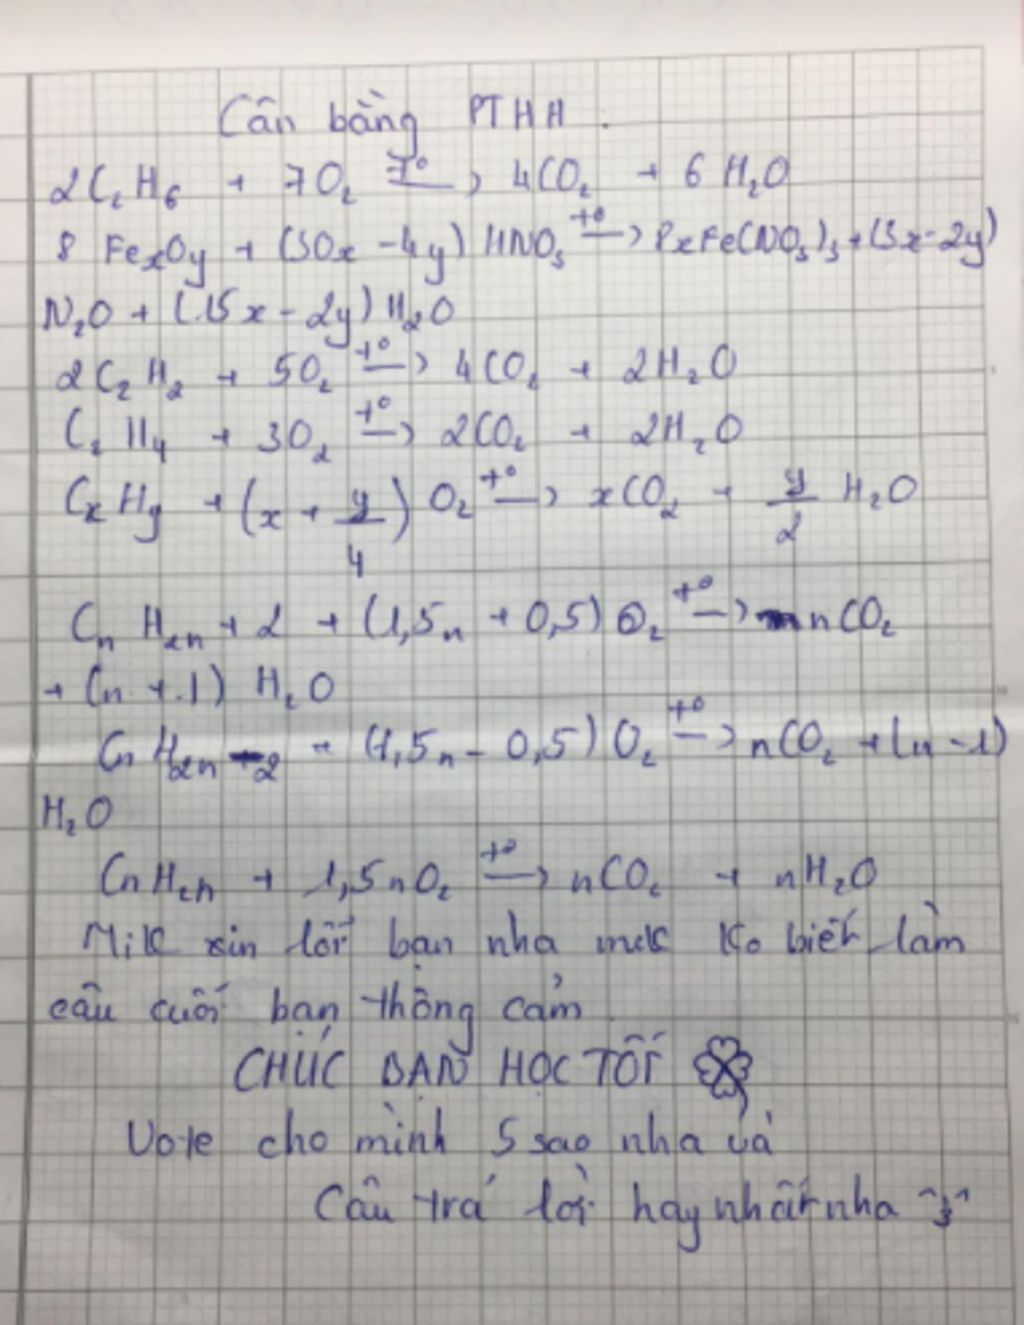 Cân bằng PTHH.
2C₂H₆ + 7O₂ —t°→ 4CO₂ + 6H₂O
8 FexOy + (30x - 4y) HNO₃ —t°→ 8xFe(NO₃)₃ + (3x-2y)
N₂O + (15x - 2y) H₂O
2C₂H₂ + 5O₂ —t°→ 4CO₂ + 2H₂O
C₂H₄ + 3O₂ —t°→ 2CO₂ + 2H₂O
CxHy + (x + y/4) O₂ —t°→ xCO₂ + y/2 H₂O
CnH2n + 2 + (1,5n + 0,5) O₂ —t°→ nCO₂
+ (n + 1) H₂O
CnH2n-2 + (1,5n - 0,5) O₂ —t°→ nCO₂ + (n-1)
H₂O
CnH2n + 1,5nO₂ —t°→ nCO₂ + nH₂O
Mik xin lỗi bạn nha mik ko biết làm
câu cuối bạn thông cảm
CHÚC BẠN HỌC TỐT
Vote cho mình 5 sao nha và
Câu trả lời hay nhất nha ^3^